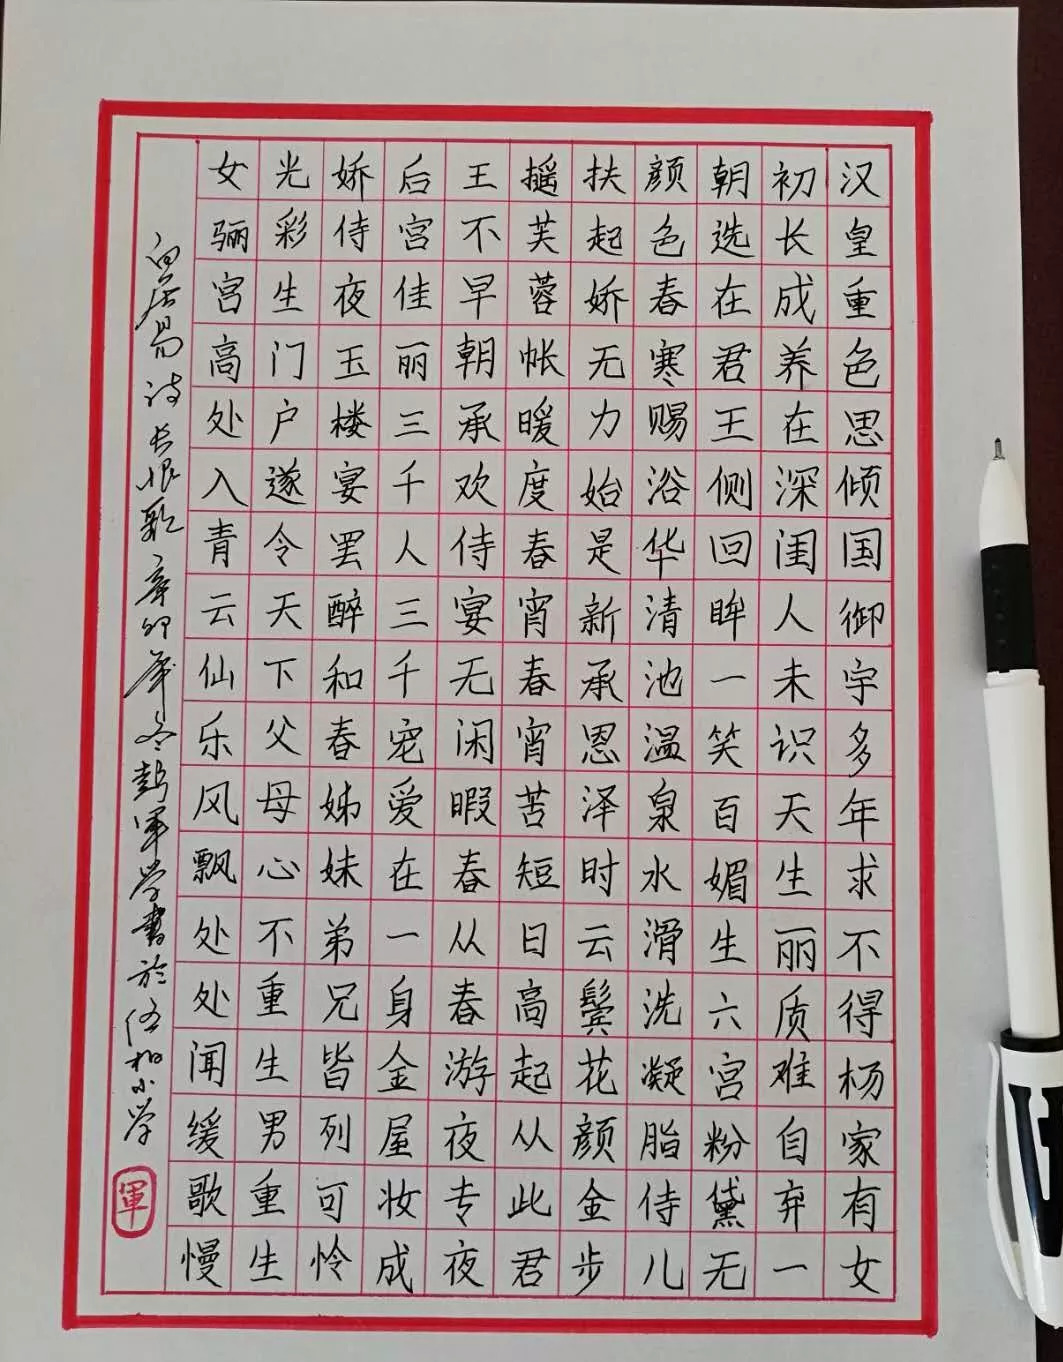 汉皇重色思倾国御宇多年求不得杨家有女
初长成养在深闺人未识天生丽质难自弃一
朝选在君王侧回眸一笑百媚生六宫粉黛无
颜色春寒赐浴华清池温泉水滑洗凝脂侍儿
扶起娇无力始是新承恩泽时云鬓花颜金步
摇芙蓉帐暖度春宵春宵苦短日高起从此君
王不早朝承欢侍宴无闲暇春从春游夜专夜
后宫佳丽三千人三千宠爱在一身金屋妆成
娇侍夜玉楼宴罢醉和春姊妹弟兄皆列可怜
光彩生门户遂令天下父母心不重生男重生
女骊宫高处入青云仙乐风飘处处闻缓歌慢
白居易诗长恨歌辛卯年冬彭軍学書於伍柏小学
軍